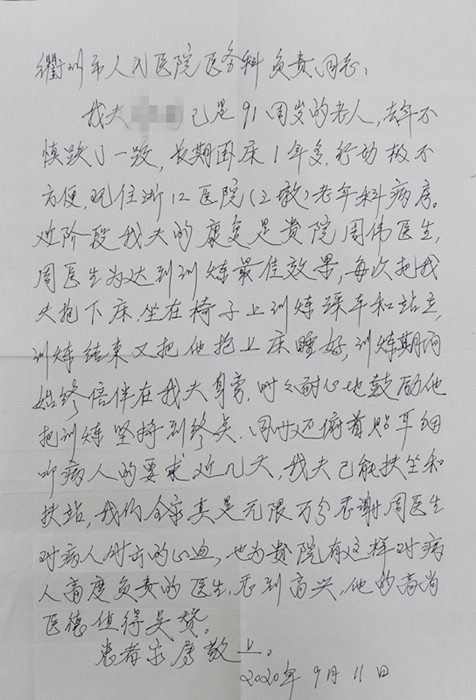 衢州市人民医院医务科负责同志：
我夫 已是91周岁的老人，去年不
慎跌了一跤，长期卧床1年多，行动极不
方便，现住浙江医院(三墩)老年科病房。
近阶段我夫的康复是贵院周伟医生，
周医生为达到训炼最佳效果，每次把我
夫抱下床，坐在椅子上训炼踩车和站立，
训炼结束又把他抱上床睡好，训炼期间
始终陪伴在我夫身旁，时刻耐心地鼓励他
把训炼坚持到终点，同时还俯首贴耳细
听病人的要求，近几天，我夫已能扶坐和
扶站，我们全家真是无限万分感谢周医生
对病人付出的心血，也为贵院有这样对病
人高度负责的医生，感到高兴，他的高尚
医德值得吴赞。
患者家属敬上。
2020年9月11日